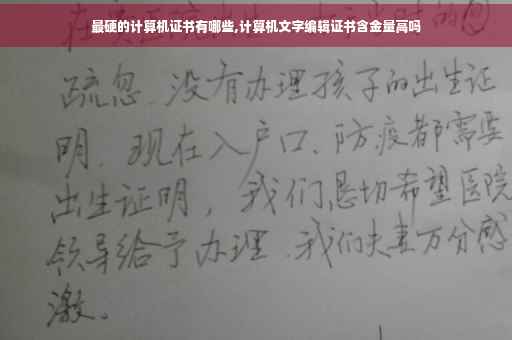 最硬的计算机证书有哪些,计算机文字编辑证书含金量高吗
疏忽、没有办理孩子的出生证
明、现在入户口、防疫都需要
出生证明，我们恳切希望医院
领导给予办理、我们夫妻万分感
激。